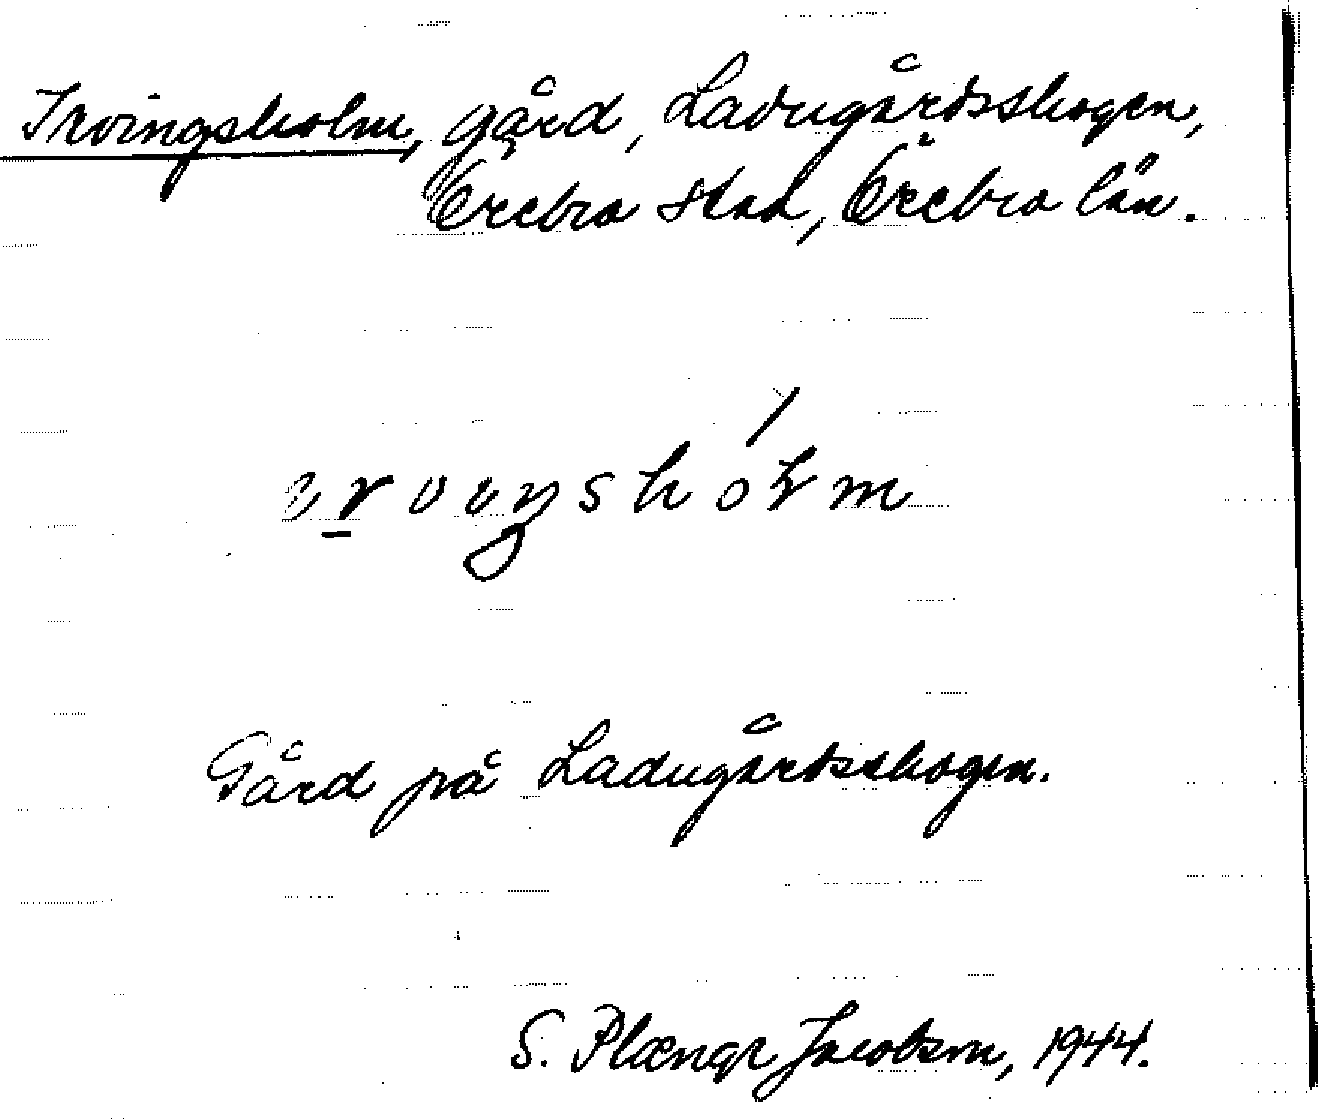 Irvingsholm, gård, Ladugårdsskogen,
Örebro stad, Örebro län.
Gård på Ladugårdsskogen.
S. Plænge Jacobson, 1944.